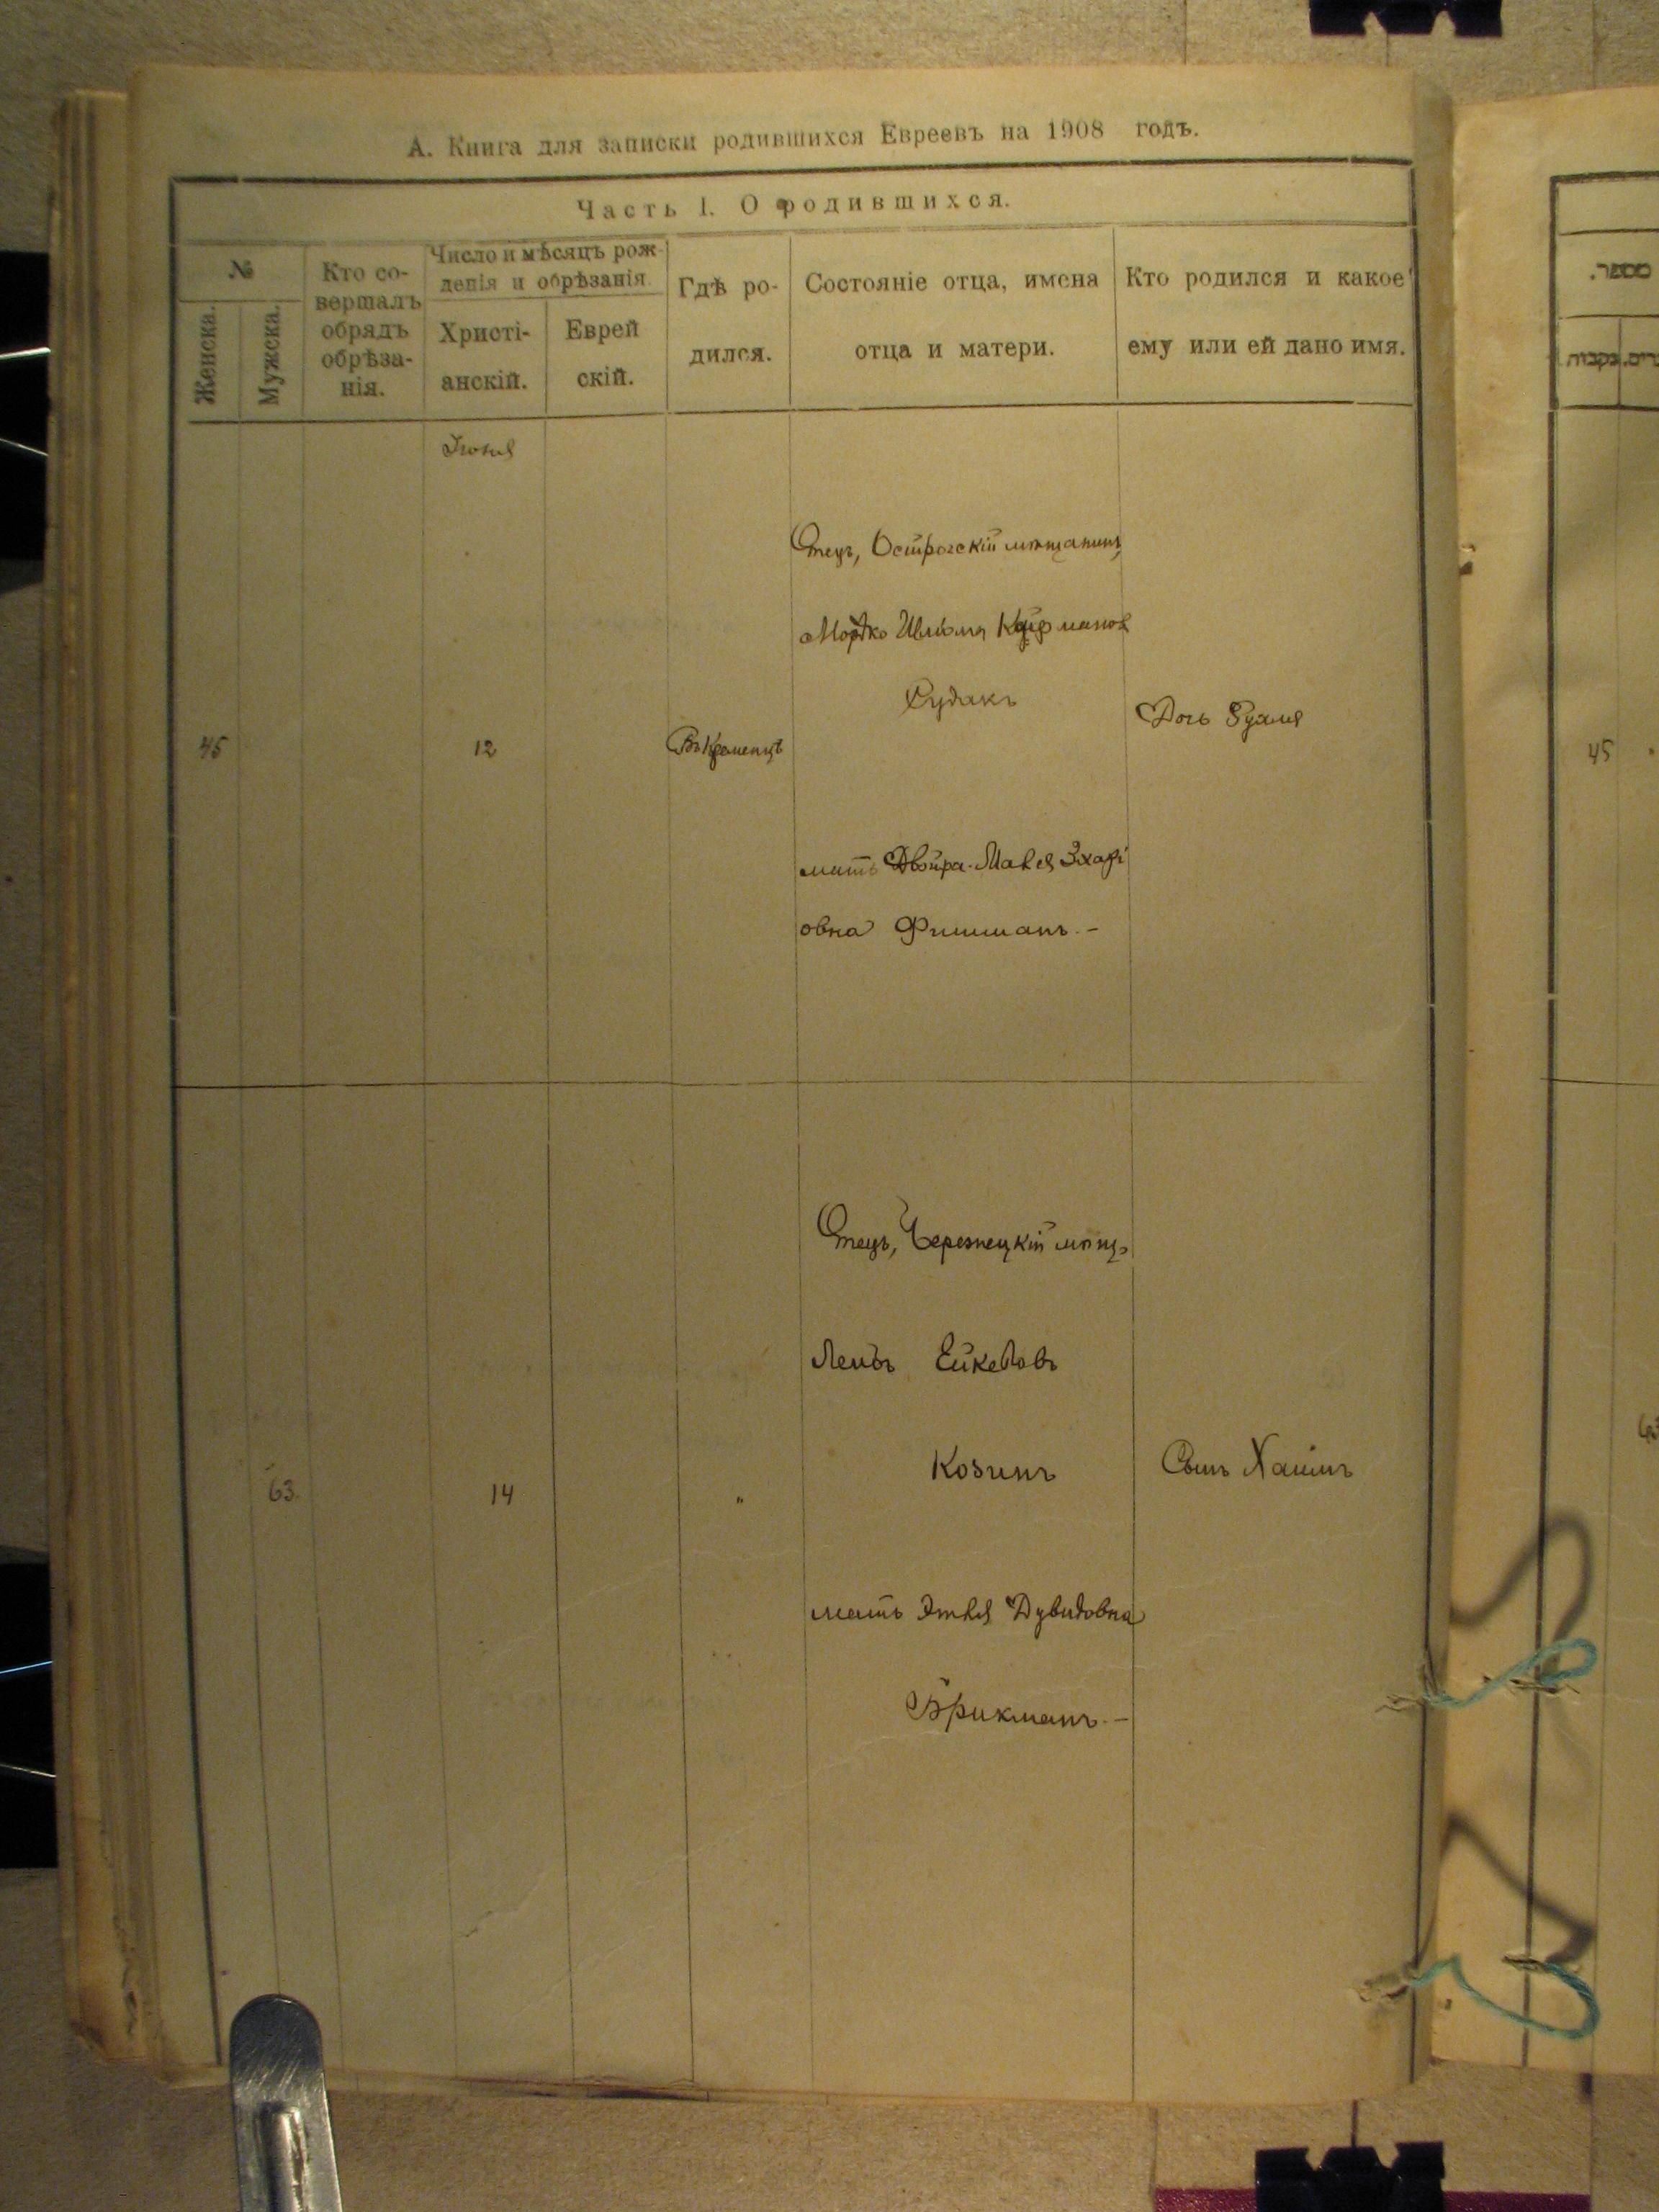 А. Книга для записки родившихся Евреевъ на 1908 годъ.
Часть I. О родившихся.
№
Женска.
Мужска.
Кто со-
вершалъ
обрядъ
обрѣза-
нія.
Число и мѣсяцъ рож-
денія и обрѣзанія.
Христі-
анскій.
Еврей
скій.
Гдѣ ро-
дился.
Состояніе отца, имена
отца и матери.
Кто родился и какое
ему или ей дано имя.
Іюня
45
12
Въ Кременцѣ
Отецъ, Острогскій мѣщанинъ,
Мордко Шлёма
Судакъ
мать Двойра-Маля
овна Фишманъ.-
Дочь Рухля
63
14
"
Отецъ, мѣщ.
Лейбъ
Козинъ
мать Этля Дувидовна
Брикманъ.-
Сынъ Хаимъ
מספר.
נקבות
45